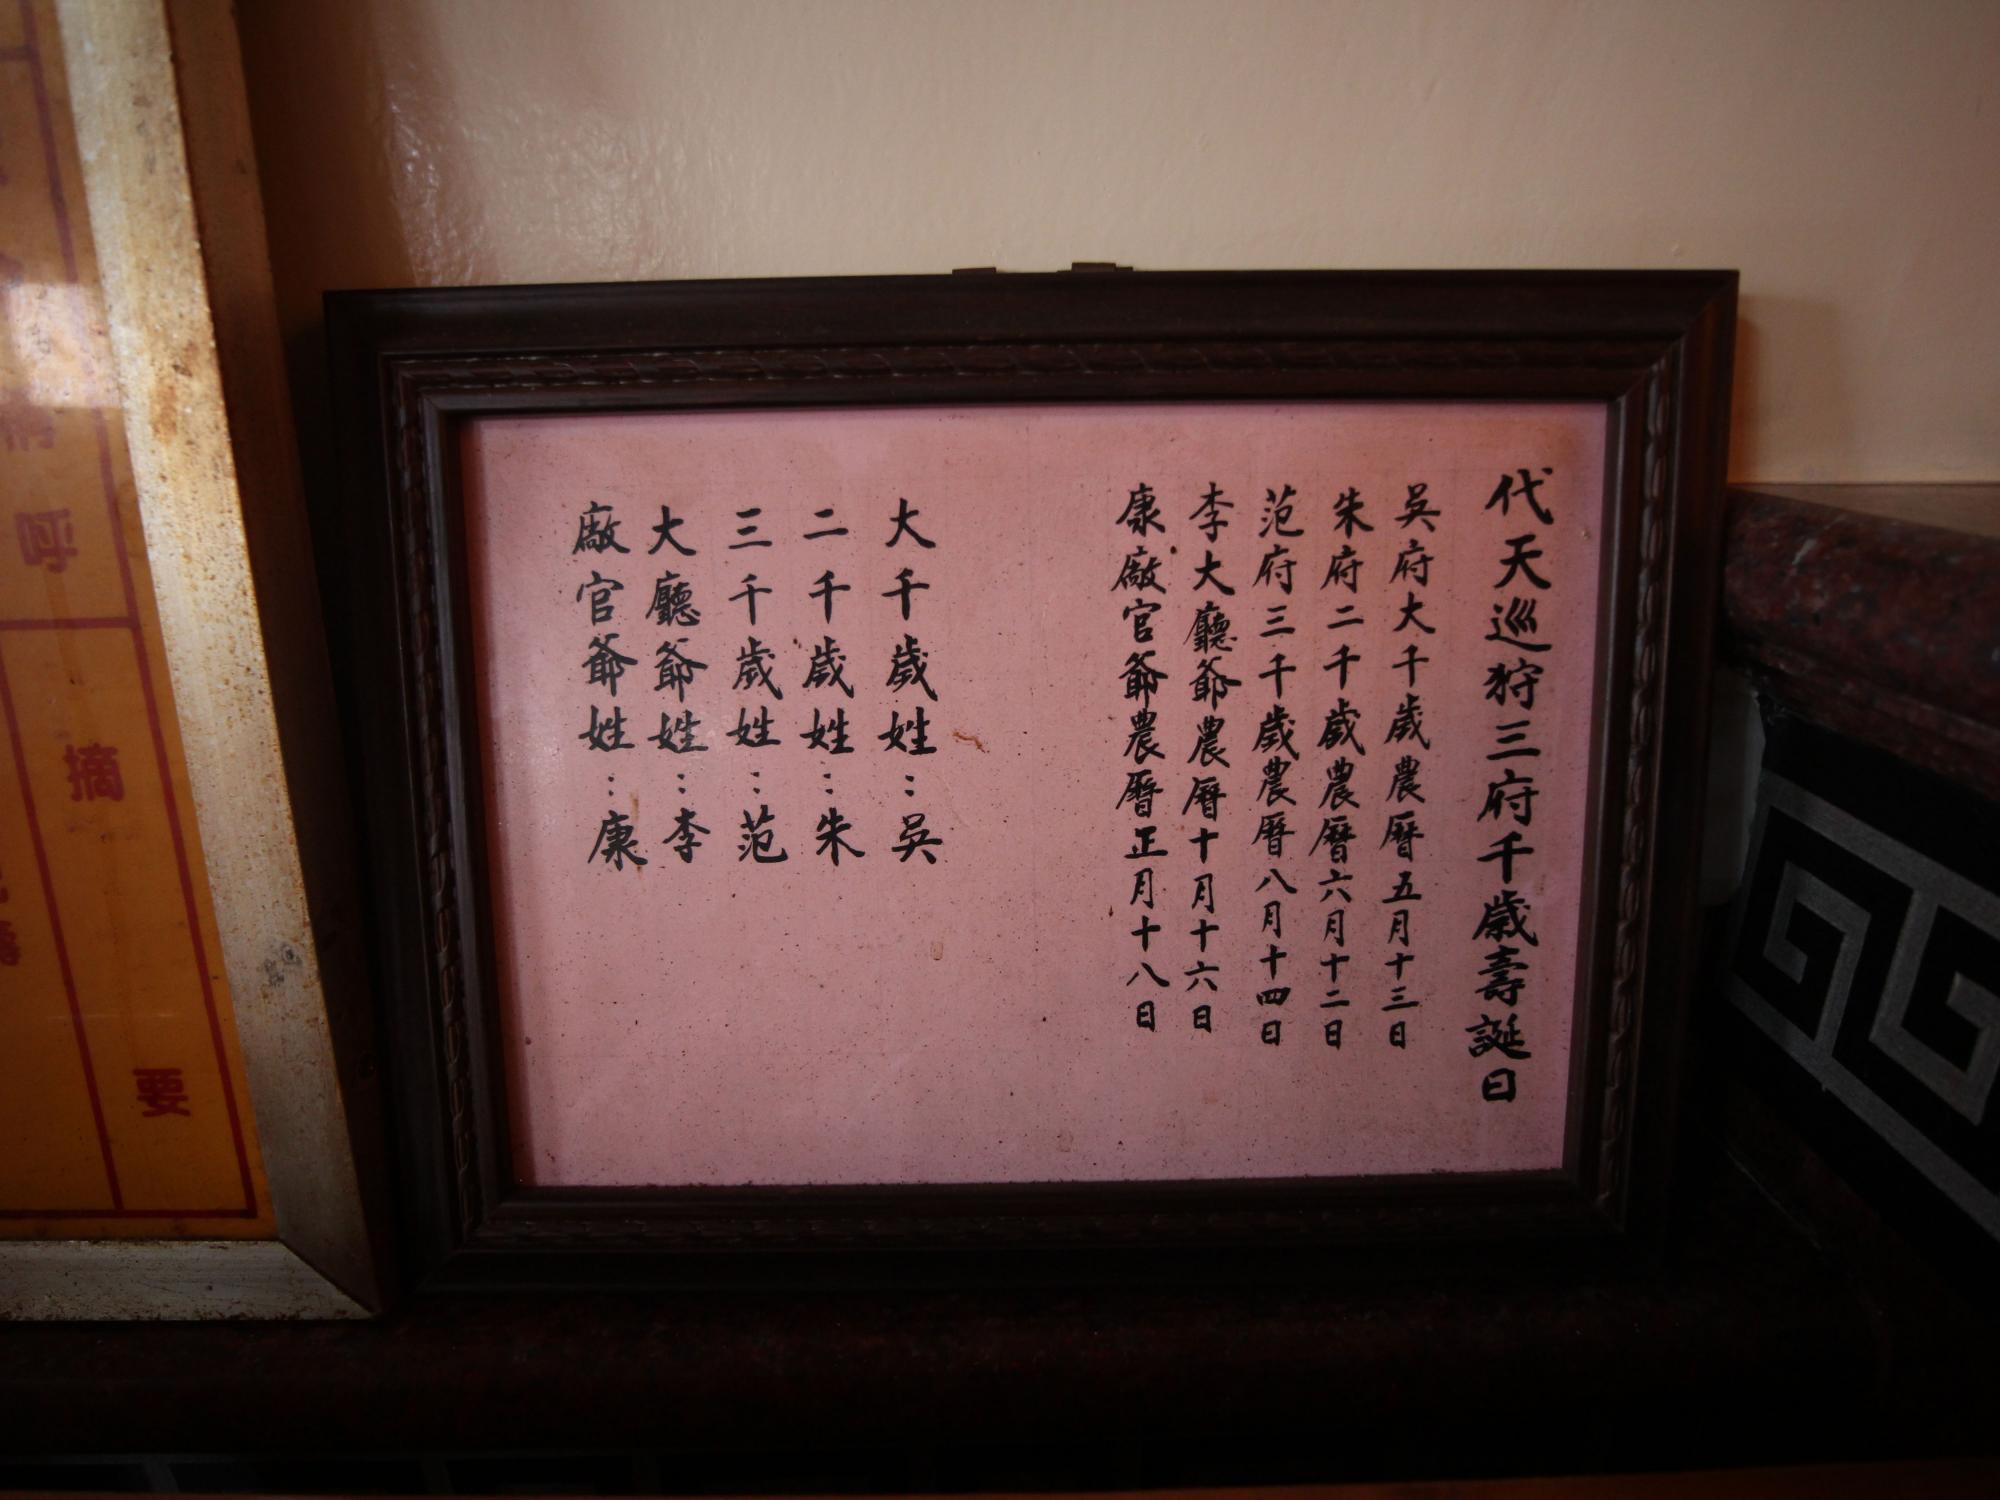 代天巡狩三府千歲壽誕日
吳府大千歲農曆五月十三日
朱府二千歲農曆六月十二日
范府三千歲農曆八月十四日
李大廳爺農曆十月十六日
康廠官爺農曆正月十八日
大千歲姓：吳
二千歲姓：朱
三千歲姓：范
大廳爺姓：李
廠官爺姓：康
摘要
呼